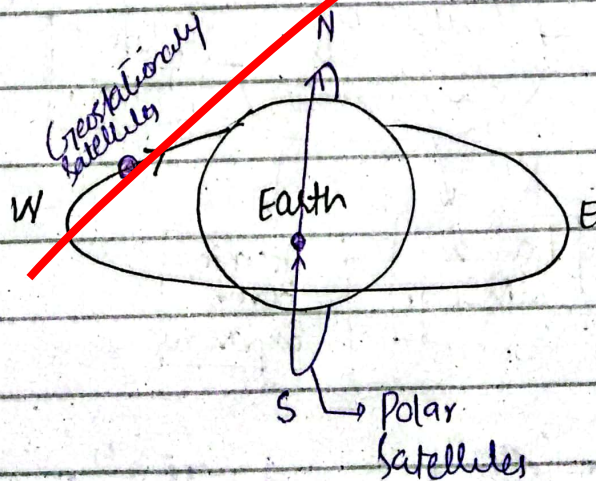 N
Geostationary
Satellites
W
Earth
E
S
Polar
Satellites